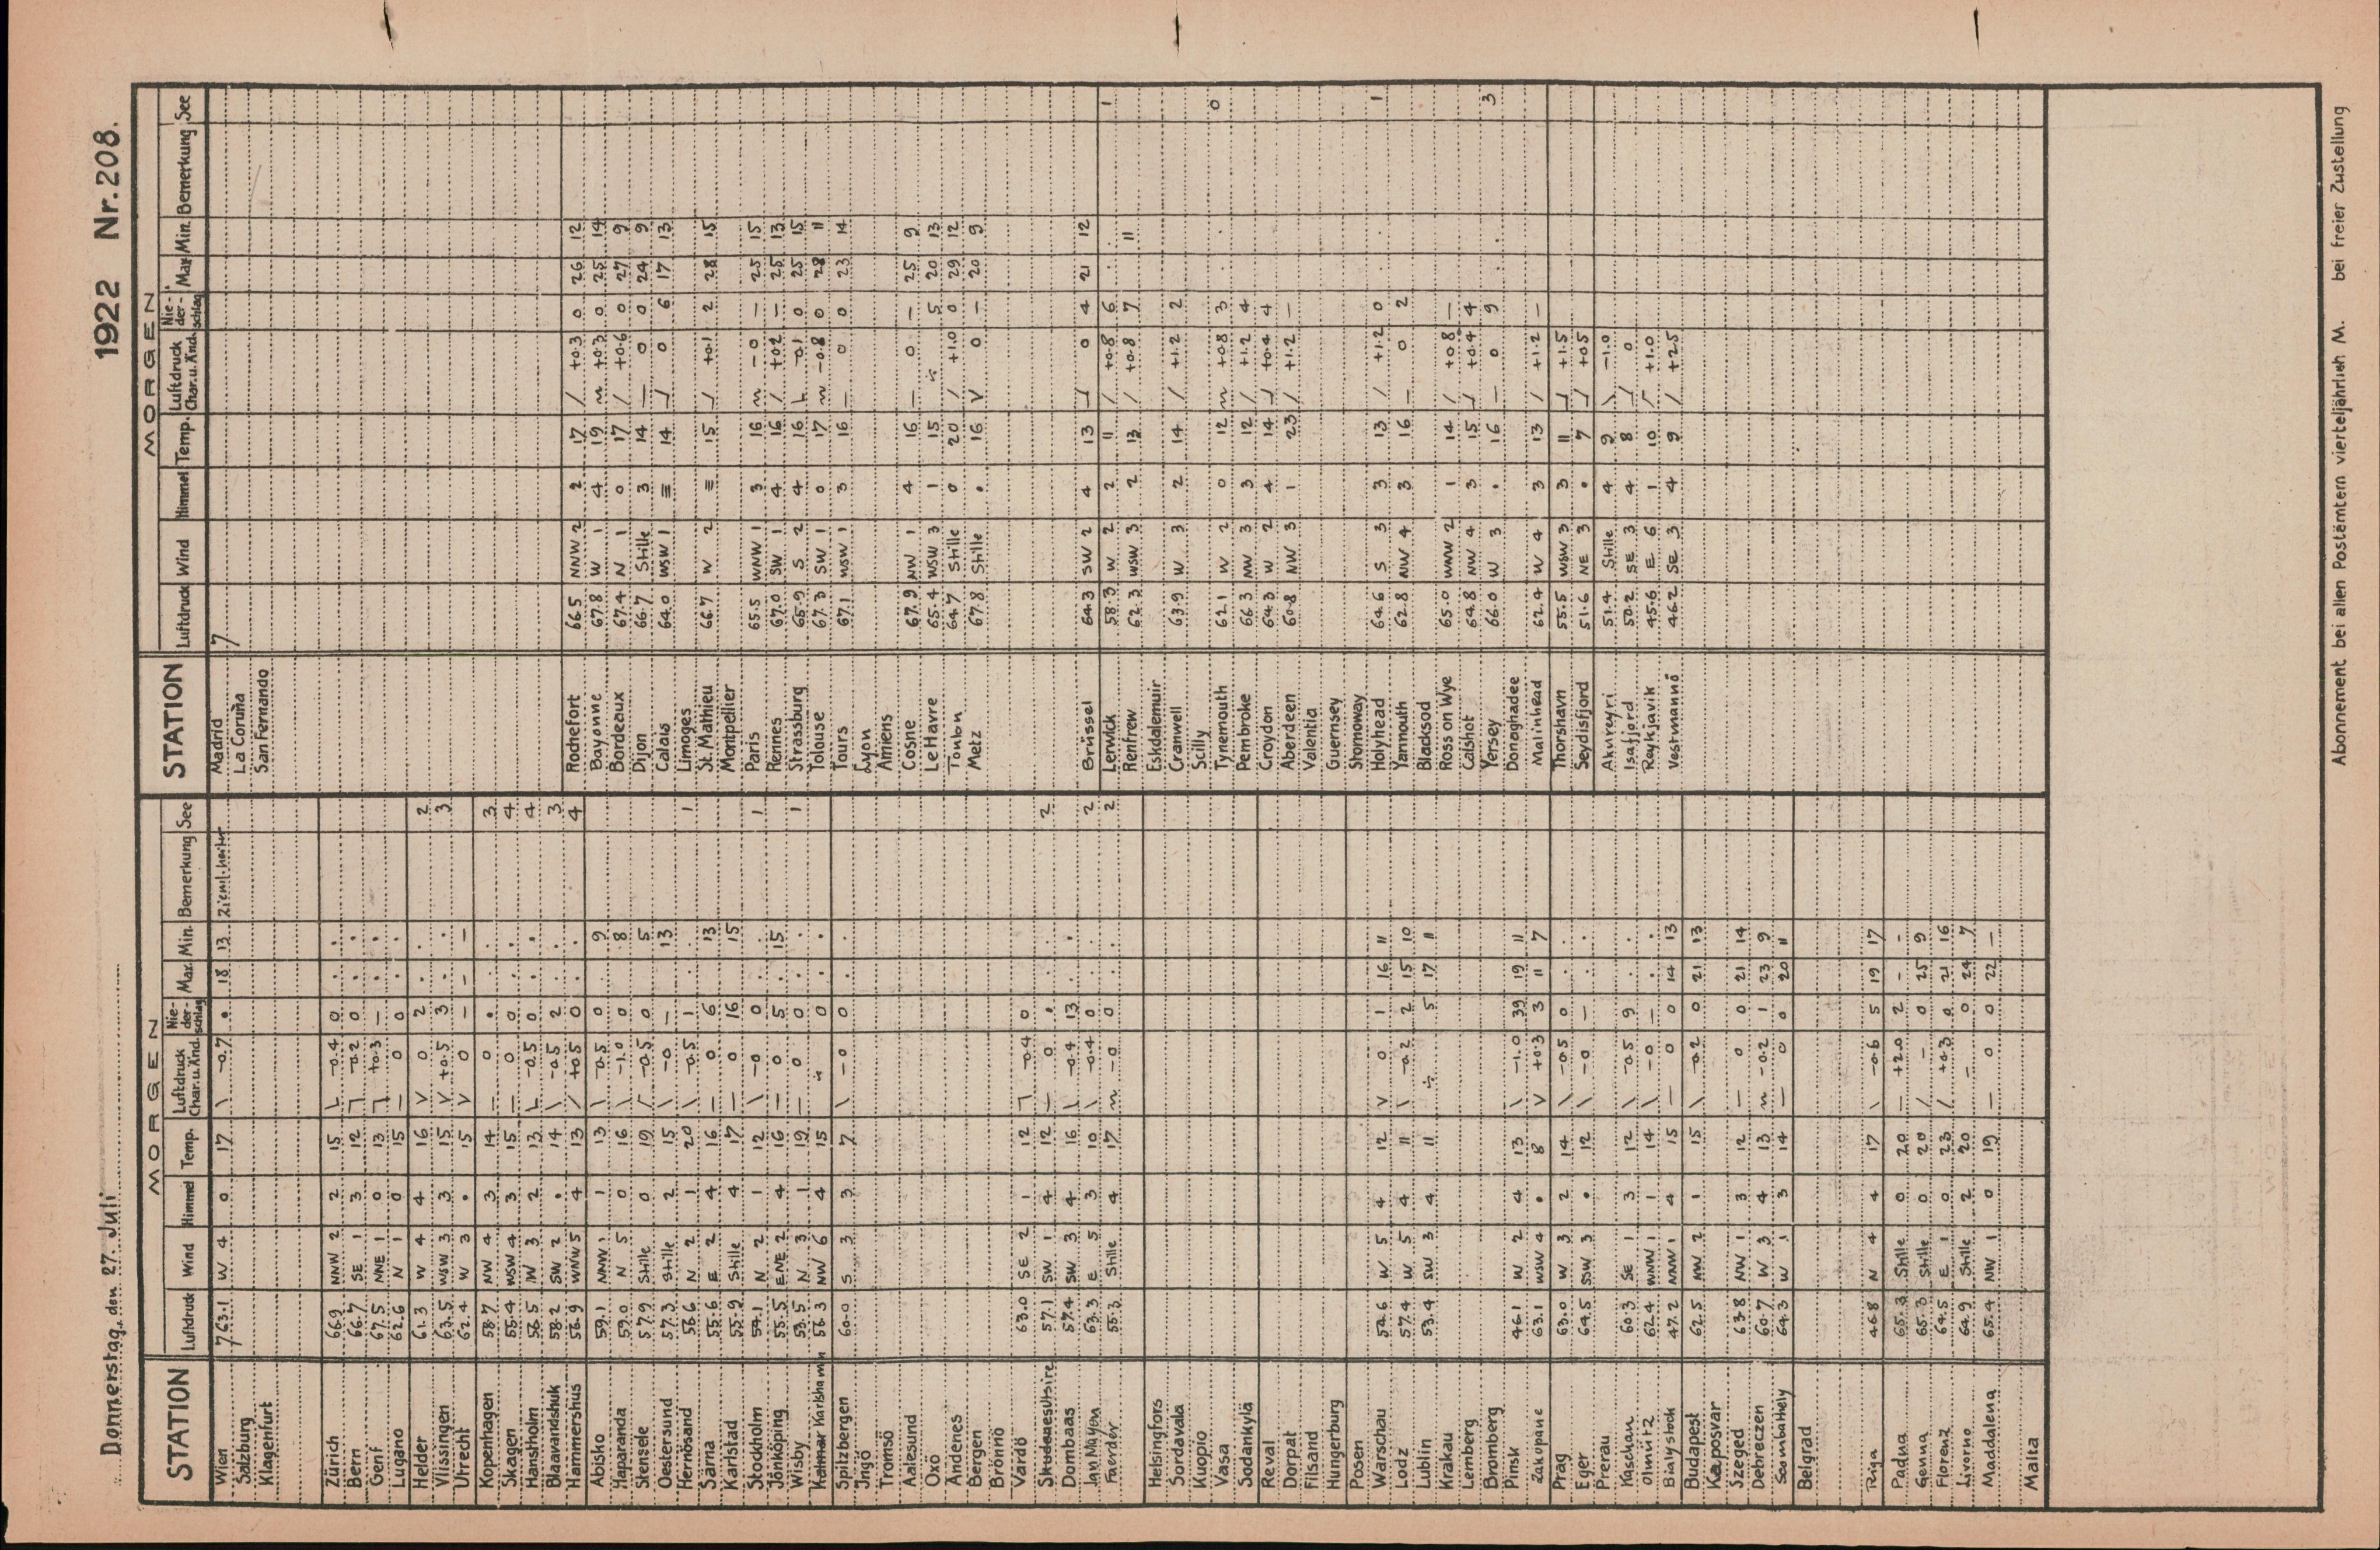 Donnerstag, den 27. Juli
1922 Nr. 208.
MORGEN
STATION Luftdruck Wind Himmel Temp. Luftdruck Char. u. Änd. Nie-der-schlag Max. Min. Bemerkung See
Wien 763.1 W 4 0 17 \ -0.7 • 18 13 Zieml. heiter
Salzburg
Klagenfurt
Zürich 66.9 NNW 2 2 15 -0.4 0 . .
Bern 66.7 SE 1 3 12 -0.2 0 . .
Genf 67.5 NNE 1 0 13 +0.3 — . .
Lugano 62.6 N 1 0 15 — 0 0 . .
Helder 61.3 W 4 4 16 V 0 2 . . 2
Vlissingen 63.5 WSW 3 3 15 V +0.5 3 . . 3
Utrecht 62.4 W 3 • 15 V 0 — — —
Kopenhagen 58.7 NW 4 3 14 — 0 • . . 3
Skagen 55.4 WSW 4 3 15 — 0 0 . . 4
Hanstholm 56.5 W 3 2 13 -0.5 0 . . 4
Blaavandshuk 58.2 SW 2 • 14 \ -0.5 2 3
Hammershus 56.9 WNW 5 4 13 / +0.5 0 . . 4
Abisko 59.1 NNW 1 1 13 \ -0.5 0 9
Haparanda 59.0 N 5 0 16 \ -1.0 0 8
Stensele 57.9 Stille 0 19 -0.5 0 5
Oestersund 57.3 Stille 2 15 \ -0 — 13
Hernösand 56.6 N 2 1 20 \ -0.5 1 . . 1
Särna 55.6 E 2 4 16 — 0 6 13
Karlstad 55.9 Stille 4 17 — 0 16 15
Stockholm 54.1 N 2 1 12 \ -0 0 . . 1
Jönköping 55.5 ENE 2 4 16 — 0 5 15
Wisby 53.5 N 3 1 19 — 0 0 . . 1
Karlshamn 56.3 NW 6 4 15 ÷ 0 . .
Spitzbergen 60.0 S 3 3 7 \ -0 0 . .
Ingö
Tromsö
Aalesund
Oxö
Andenes
Bergen
Brönnö
Vardö 63.0 SE 2 1 12 -0.4 0
Skudenaes 57.1 SW 1 4 12 0 • . . 2
Dombaas 57.4 SW 3 4 16 -0.4 13 . .
Jan Mayen 63.3 E 5 3 10 \ -0.4 0 2
Faerder 55.3 Stille 4 17 -0 0 2
Helsingfors
Sordavala
Kuopio
Vasa
Sodankylä
Reval
Dorpat
Filsand
Hungerburg
Posen
Warschau 54.6 W 5 4 12 V 0 1 16 11
Lodz 57.4 W 5 4 11 \ -0.2 2 15 10
Lublin 53.4 SW 3 4 11 ÷ 5 17 11
Krakau
Lemberg
Bromberg
Pinsk 46.1 W 2 4 13 \ -1.0 39 19 11
Zakopane 63.1 WSW 4 • 8 V +0.3 3 11 7
Prag 63.0 W 3 2 14 \ -0.5 0 . .
Eger 64.5 SSW 3 • 12 \ -0 — . .
Prerau
Kaschau 60.3 SE 1 3 12 \ -0.5 9 . .
Olmütz 62.4 WNW 1 1 14 \ -0 — . .
Bialystock 47.2 NNW 1 4 15 — 0 0 14 13
Budapest 62.5 NW 2 1 15 \ -0.2 0 21 13
Kaposvar
Szeged 63.8 NW 1 3 12 — 0 0 21 14
Debreczen 60.7 W 3 4 13 -0.2 1 23 9
Szombathely 64.3 W 1 3 14 — 0 0 20 11
Belgrad
Riga 46.8 N 4 4 17 \ -0.6 5 19 17
Padua 65.3 Stille 0 20 — +2.0 2 - -
Genua 65.3 Stille 0 20 / — 0 25 9
Florenz 64.5 E 1 0 23 / +0.3 0 21 16
Livorno 64.9 Stille 2 20 — 0 24 7
Maddalena 65.4 NW 1 0 19 — 0 0 22 —
Malta
MORGEN
STATION Luftdruck Wind Himmel Temp. Luftdruck Char. u. Änd. Nie-der-schlag Max. Min. Bemerkung See
Madrid 7
La Coruña
San Fernando
Rochefort 66.5 NNW 2 2 17 / +0.3 0 26 12
Bayonne 67.8 W 1 4 19 +0.3 0 25 14
Bordeaux 67.4 N 1 0 17 / +0.6 0 27 9
Dijon 66.7 Stille 3 14 — 0 0 24 9
Calais 64.0 WSW 1 ≡ 14 0 6 17 13
Limoges
St. Mathieu 66.7 W 2 ≡ 15 +0.1 2 28 15
Montpellier
Paris 65.5 WNW 1 3 16 -0 — 25 15
Rennes 67.0 SW 1 4 16 / +0.2 — 25 13
Strassburg 65.9 S 2 4 16 -0.1 0 25 15
Tolouse 67.3 SW 1 0 17 -0.8 0 28 11
Tours 67.1 WSW 1 3 16 — 0 0 23 14
Lyon
Amiens
Cosne 67.9 NW 1 4 16 — 0 — 25 9
Le Havre 65.4 WSW 3 1 15 ÷ 5 20 13
Toulon 64.7 Stille 0 20 / +1.0 0 29 12
Metz 67.8 Stille • 16 V 0 — 20 9
Brüssel 64.3 SW 2 4 13 0 4 21 12
Lerwick 58.3 W 2 2 11 / +0.8 6 1
Renfrew 62.3 WSW 3 2 13 / +0.8 7 11
Eskdalemuir
Cranwell 63.9 W 3 2 14 / +1.2 2
Scilly
Tynemouth 62.1 W 2 0 12 +0.8 3 0
Pembroke 66.3 NW 3 3 12 / +1.2 4
Croydon 64.3 W 2 4 14 +0.4 4
Aberdeen 60.8 NW 3 1 23 / +1.2 —
Valentia
Guernsey
Stornoway
Holyhead 64.6 S 3 3 13 / +1.2 0 1
Yarmouth 62.8 NW 4 3 16 — 0 2
Blacksod
Ross on Wye 65.0 WNW 2 1 14 / +0.8 —
Calshot 64.8 NW 4 3 15 +0.4 4
Yersey 66.0 W 3 • 16 — 0 9 3
Donaghadee
Malinhead 62.4 W 4 3 13 / +1.2 —
Thorshavn 55.5 WSW 3 3 11 +1.5
Seydisfjord 51.6 NE 3 • 7 +0.5
Akureyri 51.4 Stille 4 9 \ -1.0
Isafjord 50.2 SE 3 4 8 0
Reykjavik 45.6 E 6 1 10 +1.0
Vestmannö 46.2 SE 3 4 9 / +2.5
Abonnement bei allen Postämtern vierteljährlich M. bei freier Zustellung